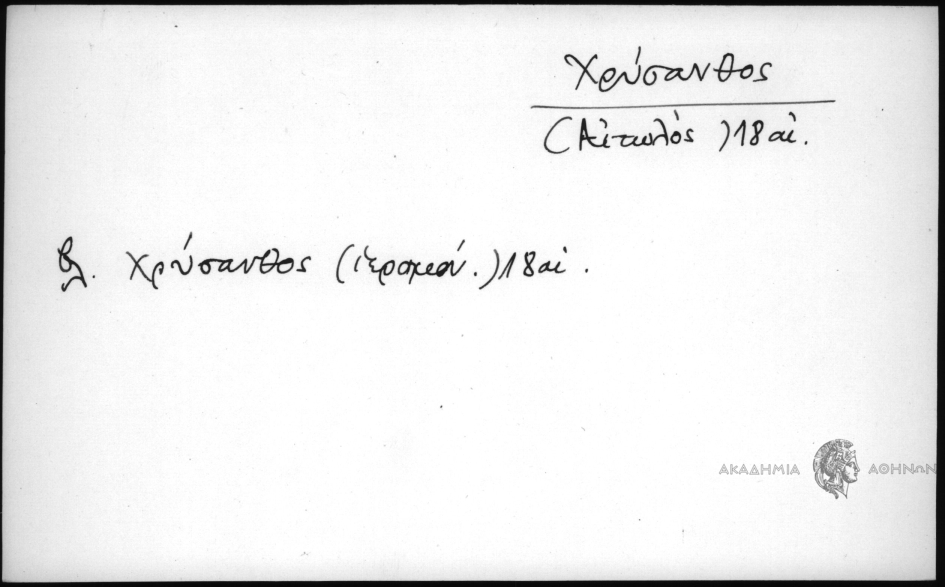 Χρύσανθος
(Αἰτωλός) 18 αἰ.
βλ. Χρύσανθος (ἱερομόν.) 18 αἰ.
ΑΚΑΔΗΜΙΑ ΑΘΗΝΩΝ